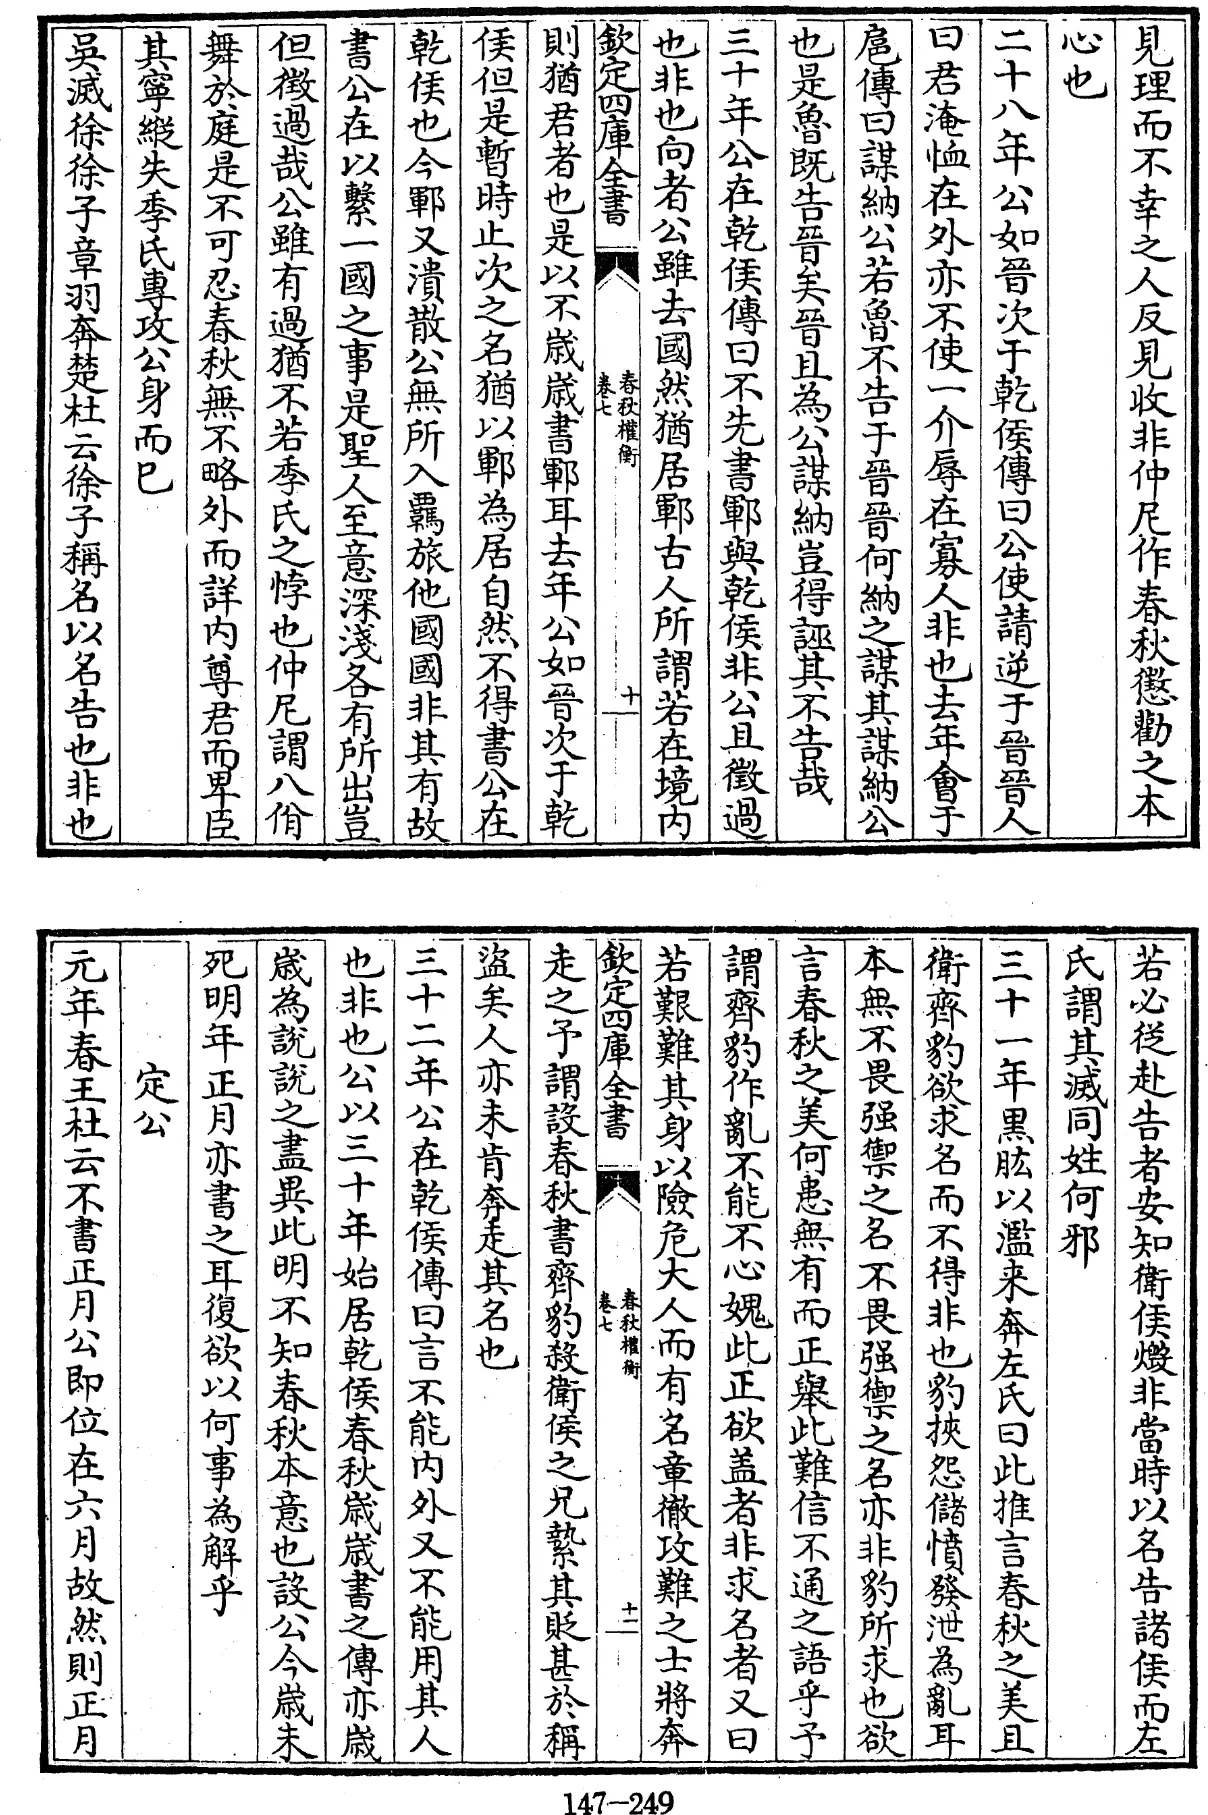 見理而不幸之人反見收非仲尼作春秋懲勸之本
心也
二十八年公如晉次于乾侯傳曰公使請逆于晉晉人
曰君淹恤在外亦不使一介辱在寡人非也去年會于
扈傳曰謀納公若魯不告于晉晉何納之謀其謀納公
也是魯既告晉矣晉且為公謀納豈得誣其不告哉
三十年公在乾侯傳曰不先書鄆與乾侯非公且徵過
也非也向者公雖去國然猶居鄆古人所謂若在境内
欽定四庫全書
春秋權衡
卷七
十
則猶君者也是以不嵗嵗書鄆耳去年公如晉次于乾
侯但是暫時止次之名猶以鄆為居自然不得書公在
乾侯也今鄆又潰散公無所入羇旅他國國非其有故
書公在以繫一國之事是聖人至意深淺各有所出豈
但徵過哉公雖有過猶不若季氏之悖也仲尼謂八佾
舞於庭是不可忍春秋無不略外而詳内尊君而卑臣
其寧縱失季氏專攻公身而已
吳滅徐徐子章羽奔楚杜云徐子稱名以名告也非也
若必從赴告者安知衛侯燬非當時以名告諸侯而左
氏謂其滅同姓何邪
三十一年黒肱以濫来奔左氏曰此推言春秋之美且
衛齊豹欲求名而不得非也豹挾怨儲憤發泄為亂耳
本無不畏强禦之名不畏强禦之名亦非豹所求也欲
言春秋之美何患無有而正舉此難信不通之語乎予
謂齊豹作亂不能不心媿此正欲盖者非求名者又曰
若艱難其身以險危大人而有名章徹攻難之士將奔
欽定四庫全書
春秋權衡
卷七
十一
走之予謂設春秋書齊豹殺衛侯之兄縶其貶甚於稱
盜矣人亦未肯奔走其名也
三十二年公在乾侯傳曰言不能内外又不能用其人
也非也公以三十年始居乾侯春秋嵗嵗書之傳亦嵗
嵗為說說之盡異此明不知春秋本意也設公今嵗未
死明年正月亦書之耳復欲以何事為解乎
定公
元年春王杜云不書正月公即位在六月故然則正月
147-249